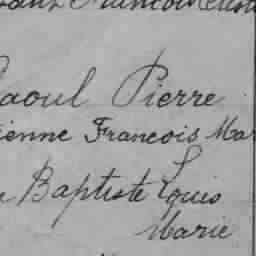 François
Raoul Pierre
ienne Francois Mar
Baptiste Louis
Marie